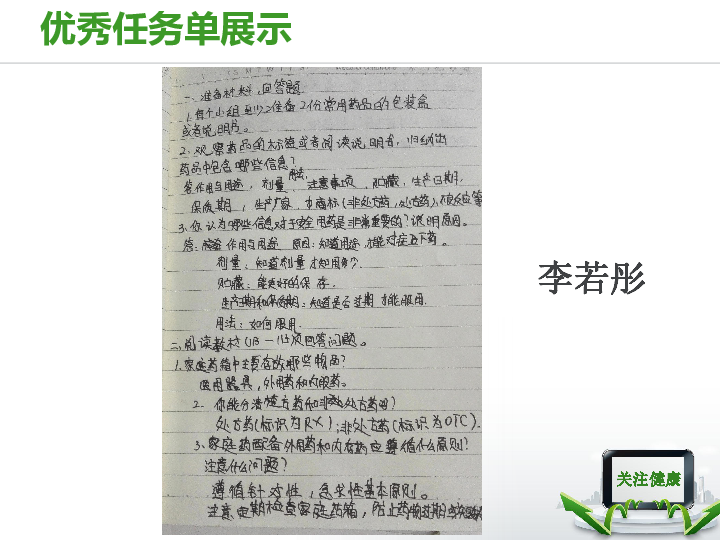 优秀任务单展示
一、准备材料,回答题
1.每个小组至少准备2份常用药品的包装盒
或者说明书。
2.观察药品的标签或者阅读说明书,归纳出
药品中包含哪些信息?
答作用与用途,剂量,用法,注意事项,贮藏,生产日期,
保质期,生产厂家,商标(非处方药,处方药),不良反应等
3.你认为哪些信息对于安全用药是非常重要的?说明原因。
答: 作用与用途 原因:知道用途才能对症下药。
剂量:知道剂量才知用多少.
贮藏:能更好的保存.
生产日期和保质期:知道是否过期才能服用.
用法:如何服用.
二、阅读教材 回答问题。
1.家庭药箱中主要有哪些物品?
医用器具,外用药和内服药。
2.你能分清处方药和非处方药吗?
处方药(标识为RX);非处方药(标识为OTC).
3.家庭药配备外用药和内服药应遵循什么原则?
注意什么问题?
遵循针对性,急求性基本原则。
注意定期检查家庭药箱,防止药物过期
李若彤
关注健康